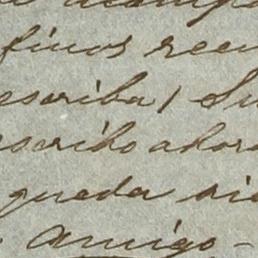 acompa
finos recu
escriba, Su
escribo ahora
queda sie
amigo -